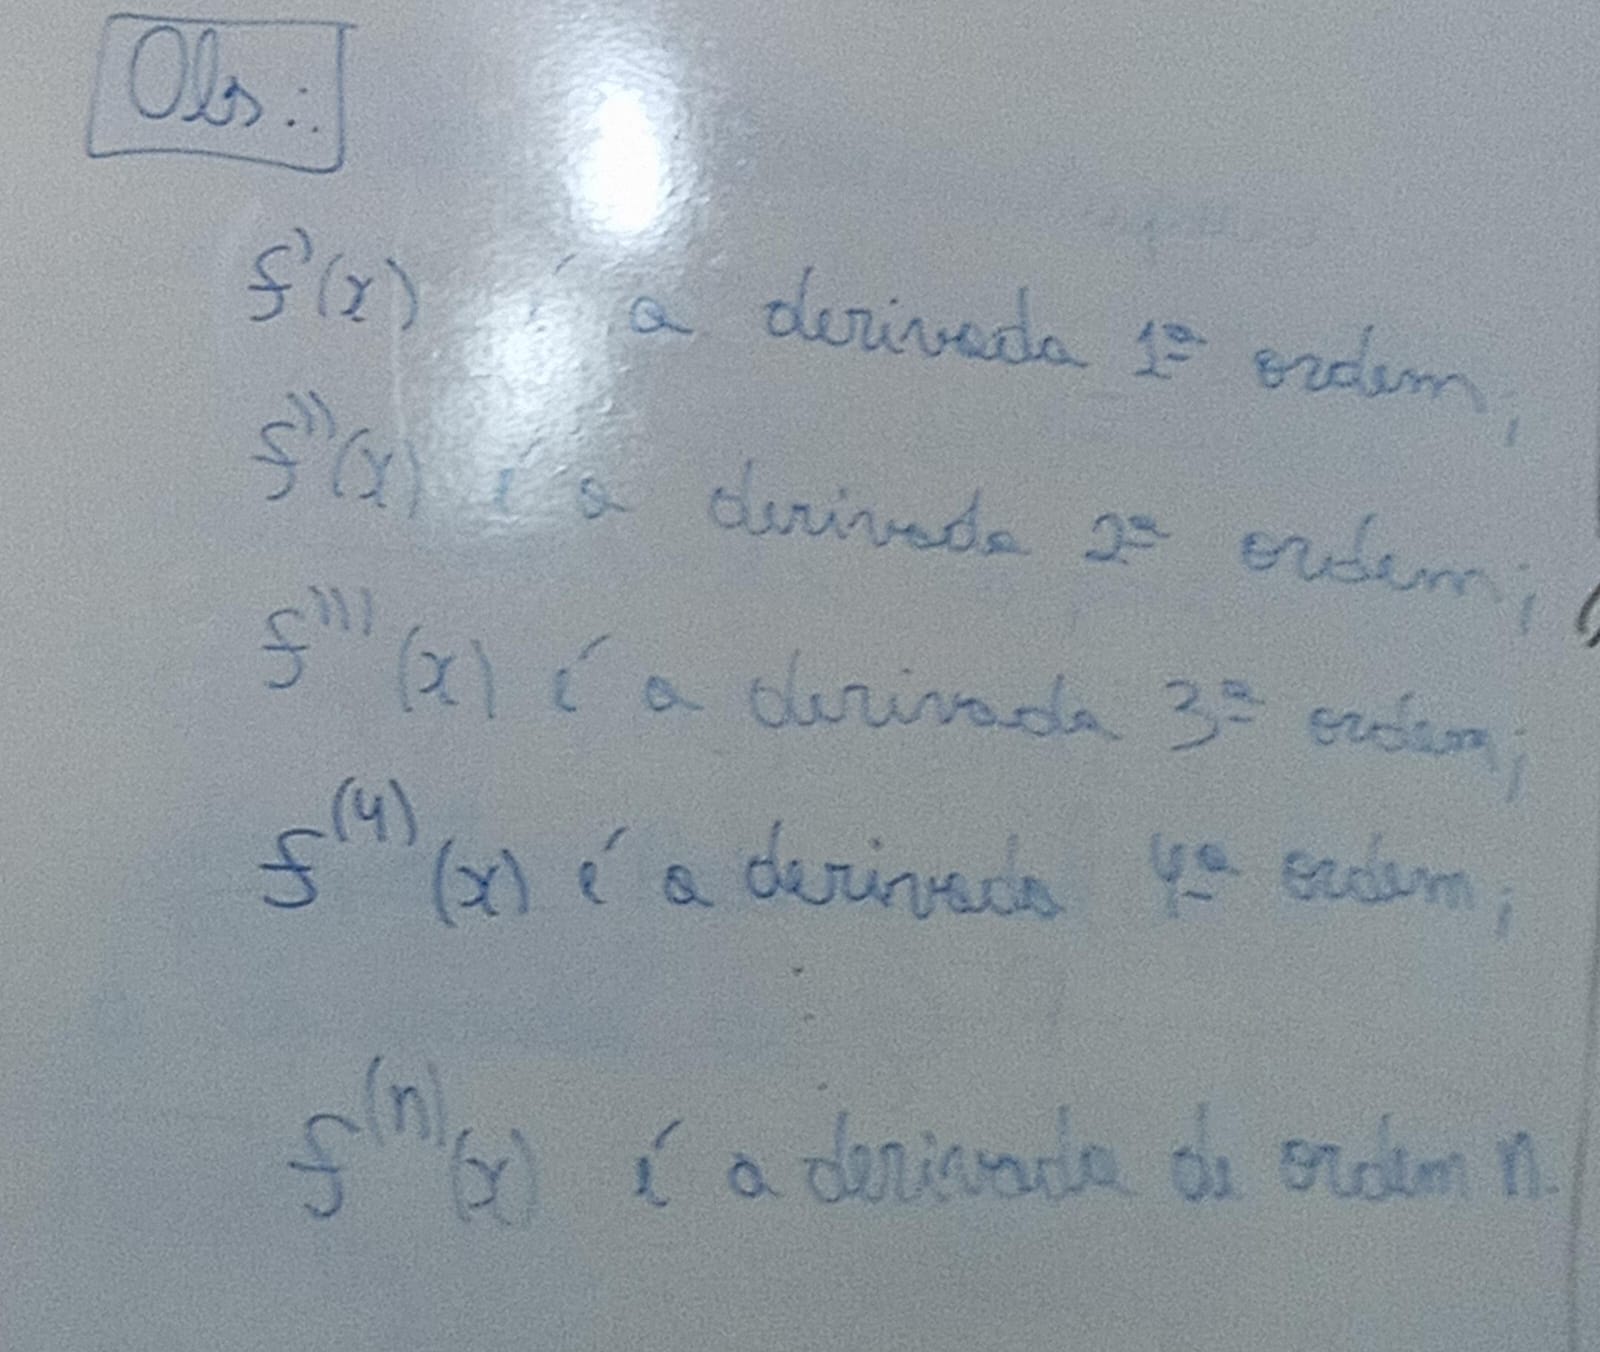 Obs.:
f'(x) é a derivada 1ª ordem;
f''(x) é a derivada 2ª ordem;
f'''(x) é a derivada 3ª ordem;
f⁽⁴⁾(x) é a derivada 4ª ordem;
f⁽ⁿ⁾(x) é a derivada de ordem n.